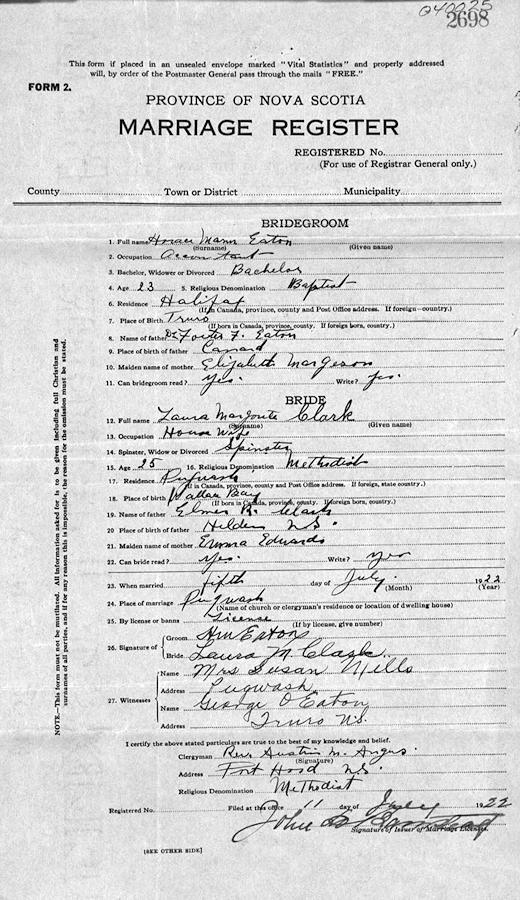 040025
2698
This form if placed in an unsealed envelope marked "Vital Statistics" and properly addressed
will, by order of the Postmaster General pass through the mails "FREE."
FORM 2.
PROVINCE OF NOVA SCOTIA
MARRIAGE REGISTER
REGISTERED No.
(For use of Registrar General only.)
County Town or District Municipality
NOTE.—This form must not be mutilated. All information asked for is to be given including full Christian and
surnames of all parties, and if for any reason this is impossible, the reason for the omission must be stated.
BRIDEGROOM
1. Full name Horace Mann Eaton
(Surname) (Given name)
2. Occupation Accountant
3. Bachelor, Widower or Divorced Bachelor
4. Age 23 5. Religious Denomination Baptist
6. Residence Halifax
(If in Canada, province, county and Post Office address. If foreign—country.)
7. Place of Birth Truro
(If born in Canada, province, county. If foreign born, country.)
8. Name of father Dr Foster F. Eaton
9. Place of father Canard
10. Maiden name of mother Elizabeth Margeson
11. Can bridegroom read? Yes. Write? Yes.
BRIDE
12. Full name Laura Clark
(Surname) (Given name)
13. Occupation House Wife
14. Spinster, Widow or Divorced Spinster
15. Age 25 16. Religious Denomination Methodist
17. Residence Pugwash
(If in Canada, province, county and Post Office address. If foreign, state country.)
18. Place of birth Wallace Bay
(If born in Canada, province, county. If foreign born, country.)
19. Name of father Elmer Clark
20. Place of father Hilden N.S.
21. Maiden name of mother Emma Edwards
22. Can bride read? Yes. Write? Yes
23. When married fifth day of July. 1922
(Month) (Year)
24. Place of marriage Pugwash
(Name of church or clergyman's residence or location of dwelling house)
25. By license or banns License
(If by license, give number)
26. Signature of Groom HM Eaton
Bride Laura M. Clark
27. Witnesses Name Mrs Susan Mills
Address Pugwash
Name George O Eaton
Address Truro N.S.
I certify the above stated particulars are true to the best of my knowledge and belief.
Clergyman Rev. Austin M. Angus.
(Signature)
Address Port Hood N.S.
Religious Denomination Methodist
Registered No. Filed at this office 11 day of July 1922
John
Signature of Issuer of Marriage Licenses.
[SEE OTHER SIDE]